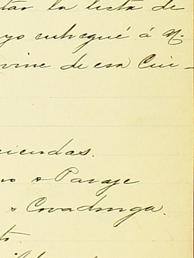 tar la lista de
yo entregué á N.
vine de esa Ciu-
ciendas.
o o Paraje
o Covadonga.
to.